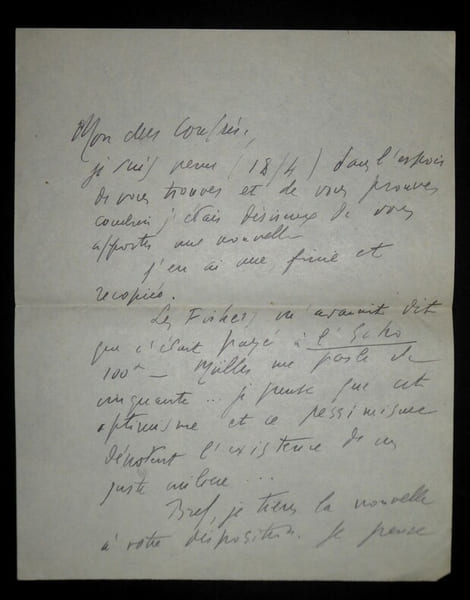 Mon cher Confrère,
je suis venu (18/4) dans l'espoir
de vous trouver et de vous prouver
combien j'étais désireux de vous
apporter une nouvelle
J'en ai une, finie et
recopiée.
Les Fisher m'avaient dit
que c'était payé à l'Echo
100 — Müller me parle de
cinquante... je pense que cet
optimisme et ce pessimisme
dénotent l'existence d'un
juste milieu...
Bref, je tiens la nouvelle
à votre disposition. Je pense